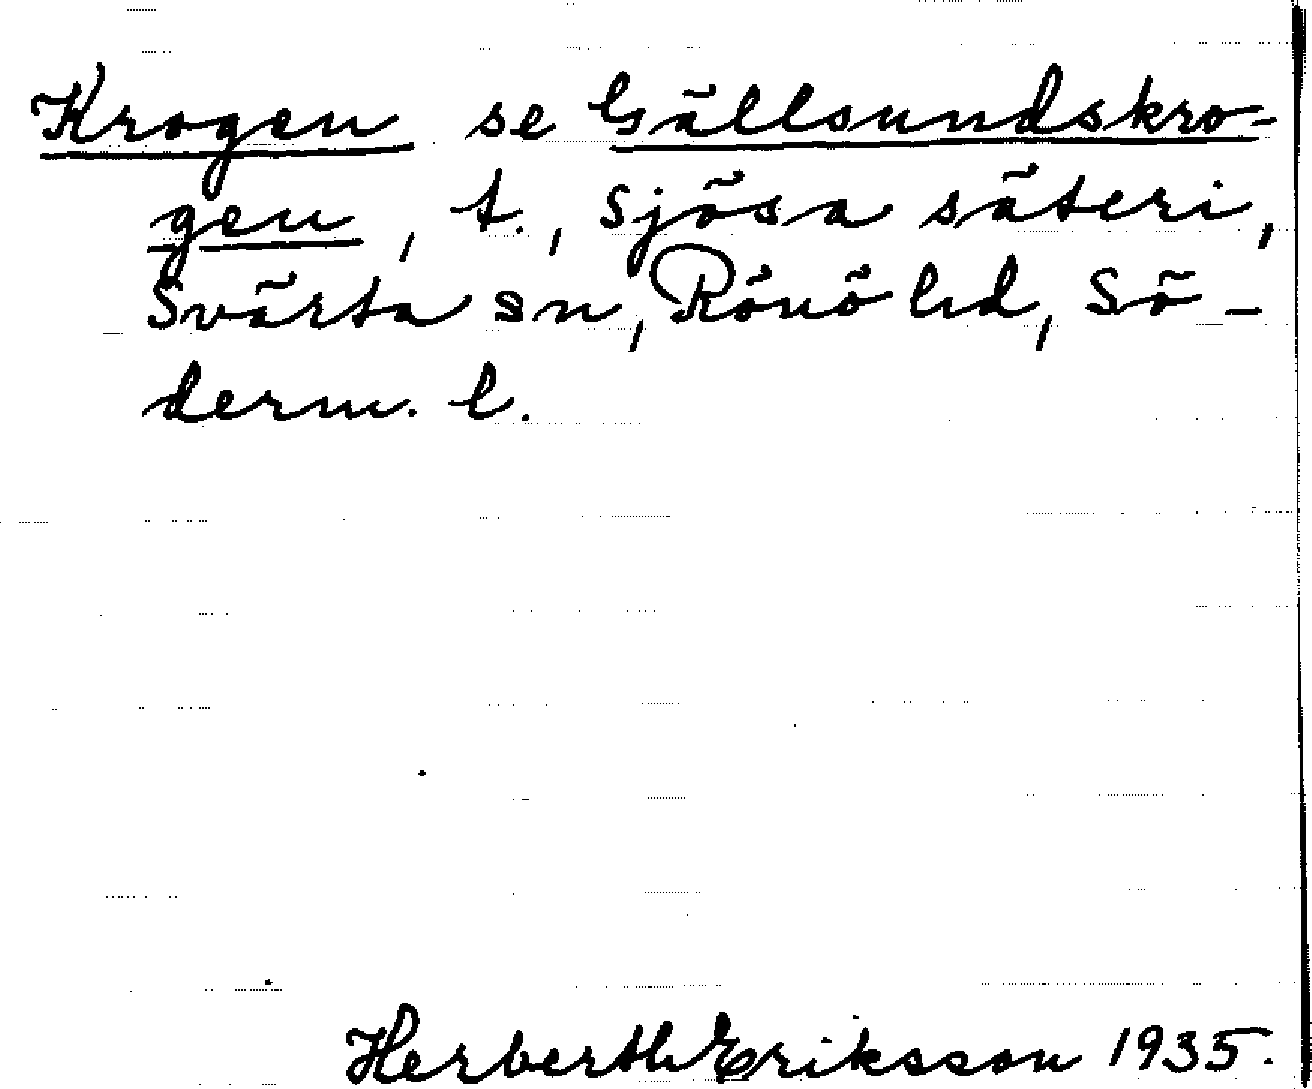 Krogen se Gällsundskro-
gen, t., Sjösa säteri,
Svärta sn, Rönö hd, Sö-
derm. l.
Herberth Eriksson 1935.